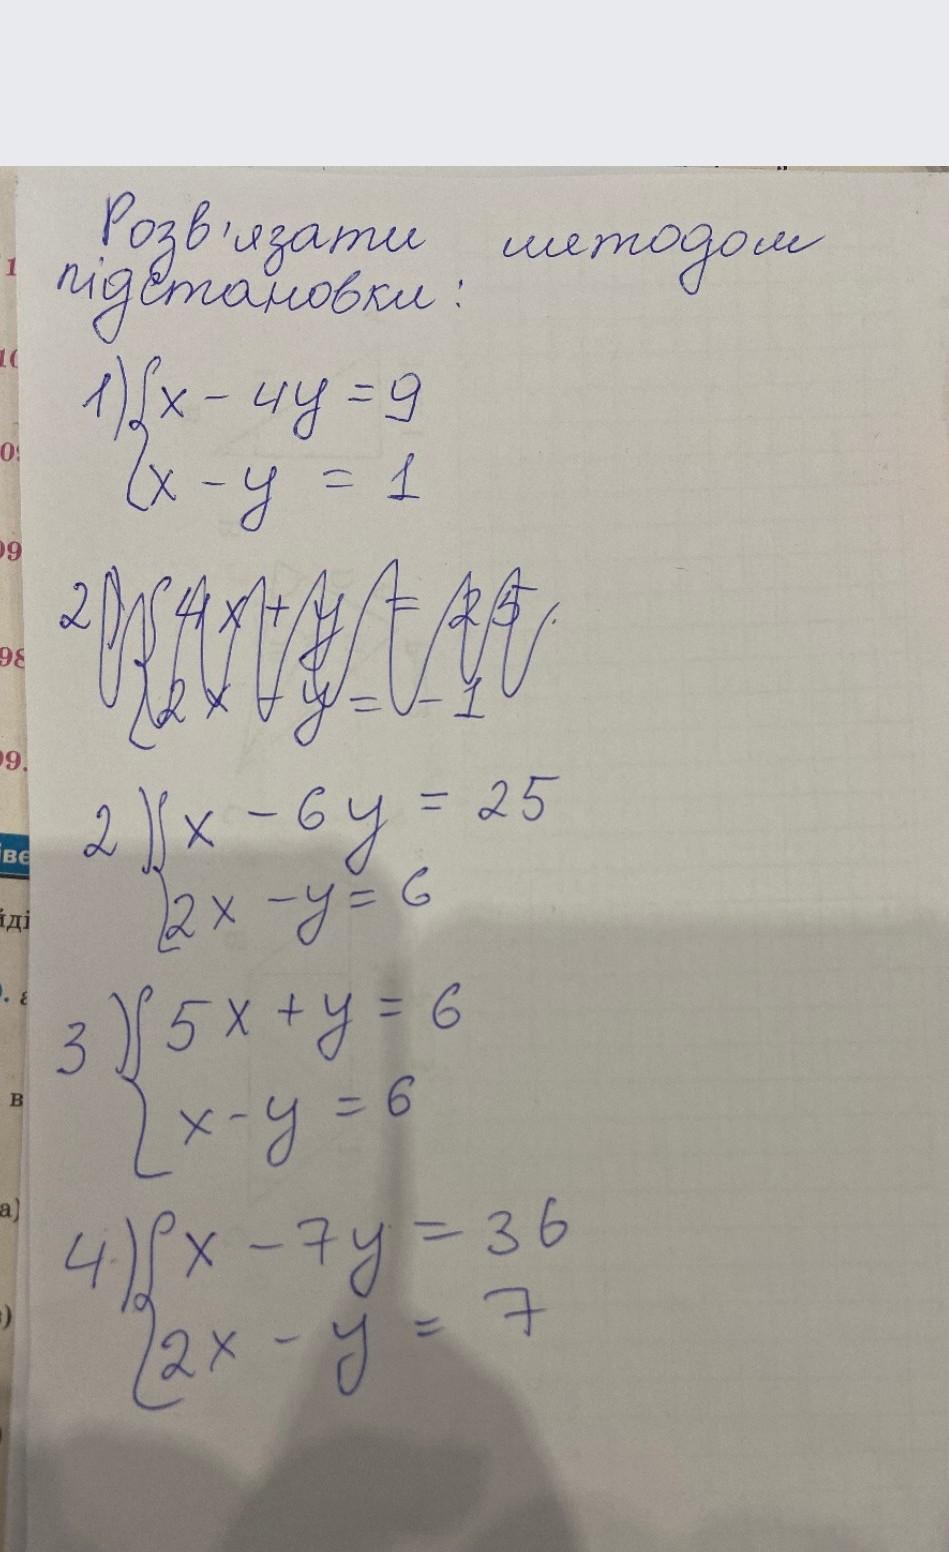 Розв'язати методом
підстановки:
1) { x - 4y = 9
x - y = 1
2) { 4x + y = 25
2x - y = -1
2) { x - 6y = 25
2x - y = 6
3) { 5x + y = 6
x - y = 6
4) { x - 7y = 36
2x - y = 7